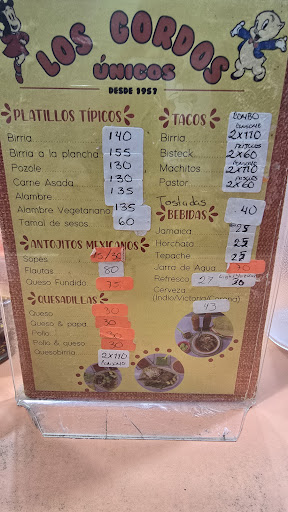 LOS GORDOS
ÚNICOS
DESDE 1957
PLATILLOS TÍPICOS
Birria 140
Birria a la plancha 155
Pozole 130
Carne Asada 130
Alambre 135
Alambre Vegetariano 135
Tamal de sesos 60
ANTOJITOS MEXICANOS
Sopes /30
Flautas 80
Queso Fundido 75
QUESADILLAS
Queso 30
Queso & papa 30
Pollo
Pollo & queso 30
Quesobirria 2x110
CONSOME
TACOS
COMBO
CONSOME
Birria 2x110
Bisteck 2x60
CONSOME
Machitos 2x110
Pastor 2x60
Tostadas 40
BEBIDAS
Jamaica 25
Horchata 25
Tepache 25
Jarra de Agua 70
Refresco 27
Cerveza
(Indio/Victoria/Corona) 43